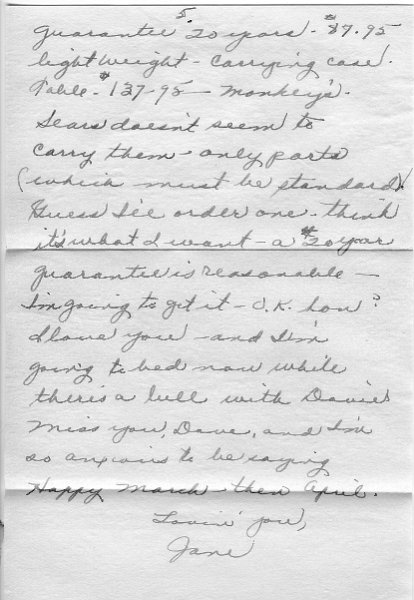 5.
guarantee 20 years - $87.95
lightweight - carrying case.
Table - $137.95 - Monkey's.
Sears doesn't seem to
carry them - only parts
(which must be standard).
Guess I'll order one - think
it's what I want - a $20 year
guarantee is reasonable -
I'm going to get it - O.K. hon?
I love you - and I'm
going to bed now while
there's a lull with Davie.
Miss you, Dave, and I'm
so anxious to be saying
Happy March - then April.
Lovin' you,
Jane